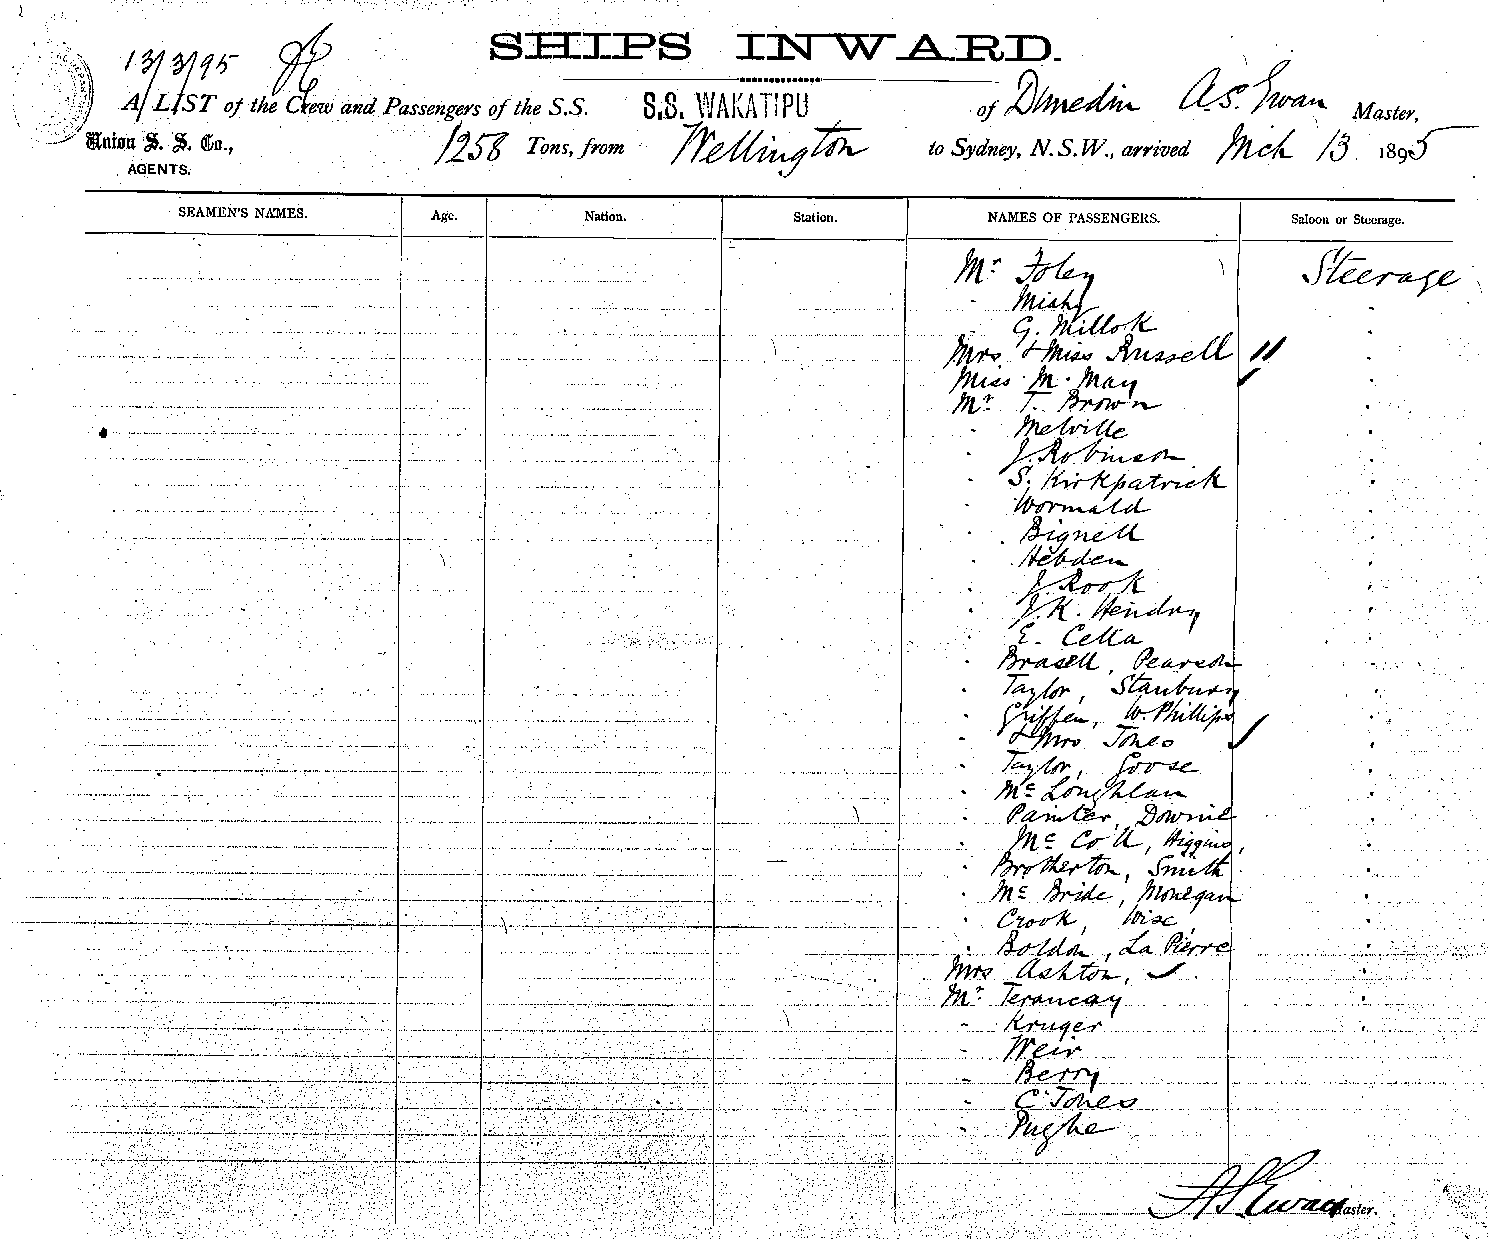 SHIPS INWARD.
13/3/95
A LIST of the Crew and Passengers of the S.S. S.S. WAKATIPU of Dunedin A.S. Ewan Master,
Union S. S. Co., 1258 Tons, from Wellington to Sydney, N.S.W., arrived Mch 13 1895
AGENTS.
SEAMEN'S NAMES. Age. Nation. Station. NAMES OF PASSENGERS. Saloon or Steerage.
Mr Foley Steerage
G. Millok
Mrs & Miss Russell
Miss M. May
Mr T. Brown
Melville
J. Robinson
S. Kirkpatrick
Wormald
Bignell
Hebden
J. Rook
J. K. Hendry
E. Cella
Brasell, Pearson
Taylor, Stanbury
Griffen, W. Phillips
& Mrs Jones
Taylor, Goose
Mc Loughlan
Painter, Downie
Mc Coll, Higgins,
Brotherton, Smith
Mc Bride, Monegan
Crook, Wise,
Boldon, La Pierre
Mrs Ashton,
Mr
Kruger
Weir
Berry
C Jones
Pughe
A S Ewan Master.